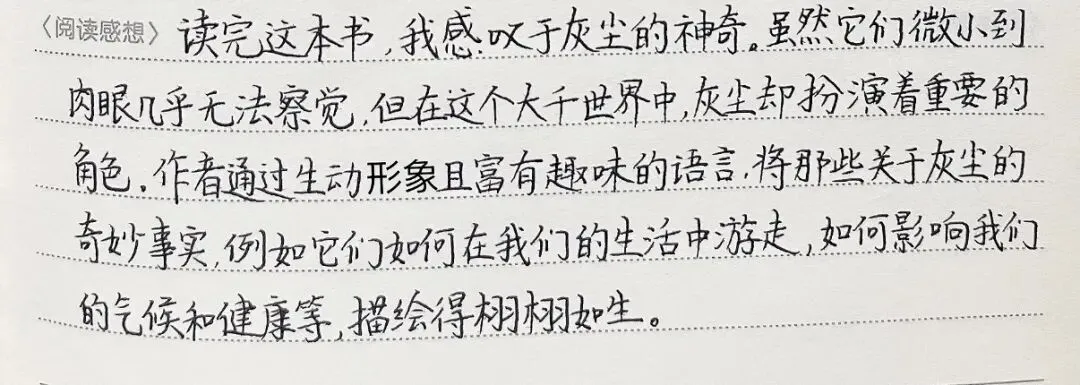 〈阅读感想〉读完这本书,我感叹于灰尘的神奇。虽然它们微小到
肉眼几乎无法察觉,但在这个大千世界中,灰尘却扮演着重要的
角色。作者通过生动形象且富有趣味的语言,将那些关于灰尘的
奇妙事实,例如它们如何在我们的生活中游走,如何影响我们
的气候和健康等,描绘得栩栩如生。